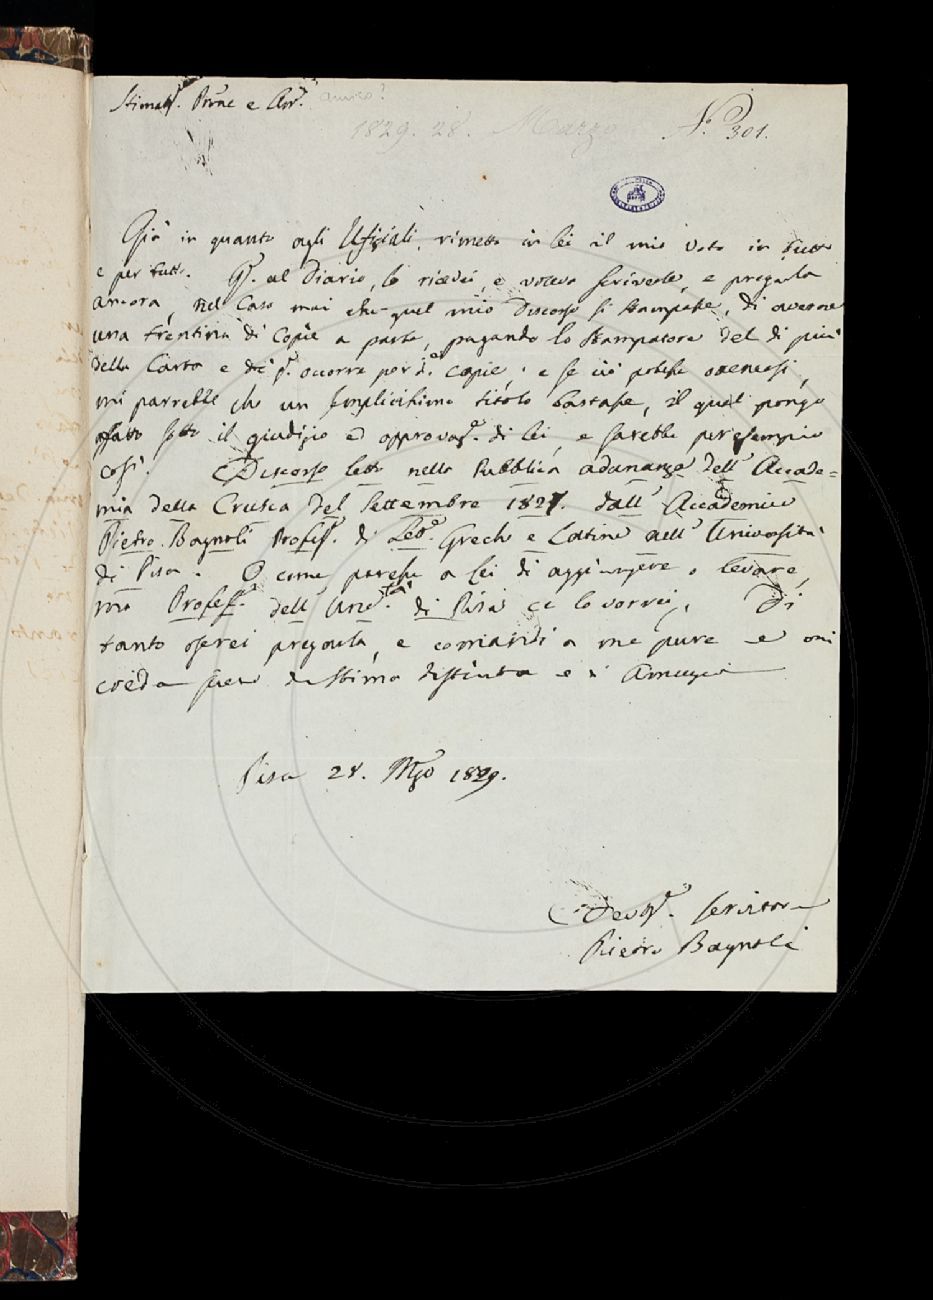 Stimatᵐᵒ. Prone e Amᶜᵒ. amico?
1829. 28. Marzo N.° 301.
Già in quanto agli Ufiziali, rimetto in lei il mio voto in tutto
e per tutto. Qᵗᵒ. al Diario, lo ricevei, e volevo scriverle, e pregarla
ancora, nel caso mai che quel mio Discorso si stampasse, di averne
una trentina di Copie a parte, pagando lo Stampatore del di più
della Carta e di ... occorra per d.ᵉ copie; e se ciò potesse ottenersi,
mi parrebbe che un semplicissimo titolo bastasse, il qual pongo
affatto sotto il giudizio ed approvazᵉ. di lei, e sarebbe per esempio
così. Discorso letto nella Pubblica adunanza dell' Accade=
mia della Crusca del Settembre 1827. dall' Accademico
Pietro Bagnoli Profess.ᵉ di Lett.ᵉ Greche e Latine nell' Università
di Pisa. O come paresse a lei di aggiungere o levare,
ma Profess.ᵉ dell' Univ.ᵗᵃ di Pisa ce lo vorrei. Di
tanto oserei pregarla, e comandi a me pure e mi
creda pieno di stima distinta e di amicizia
Pisa 28. Mzo 1829.
Devotᵐᵒ. servitore
Pietro Bagnoli